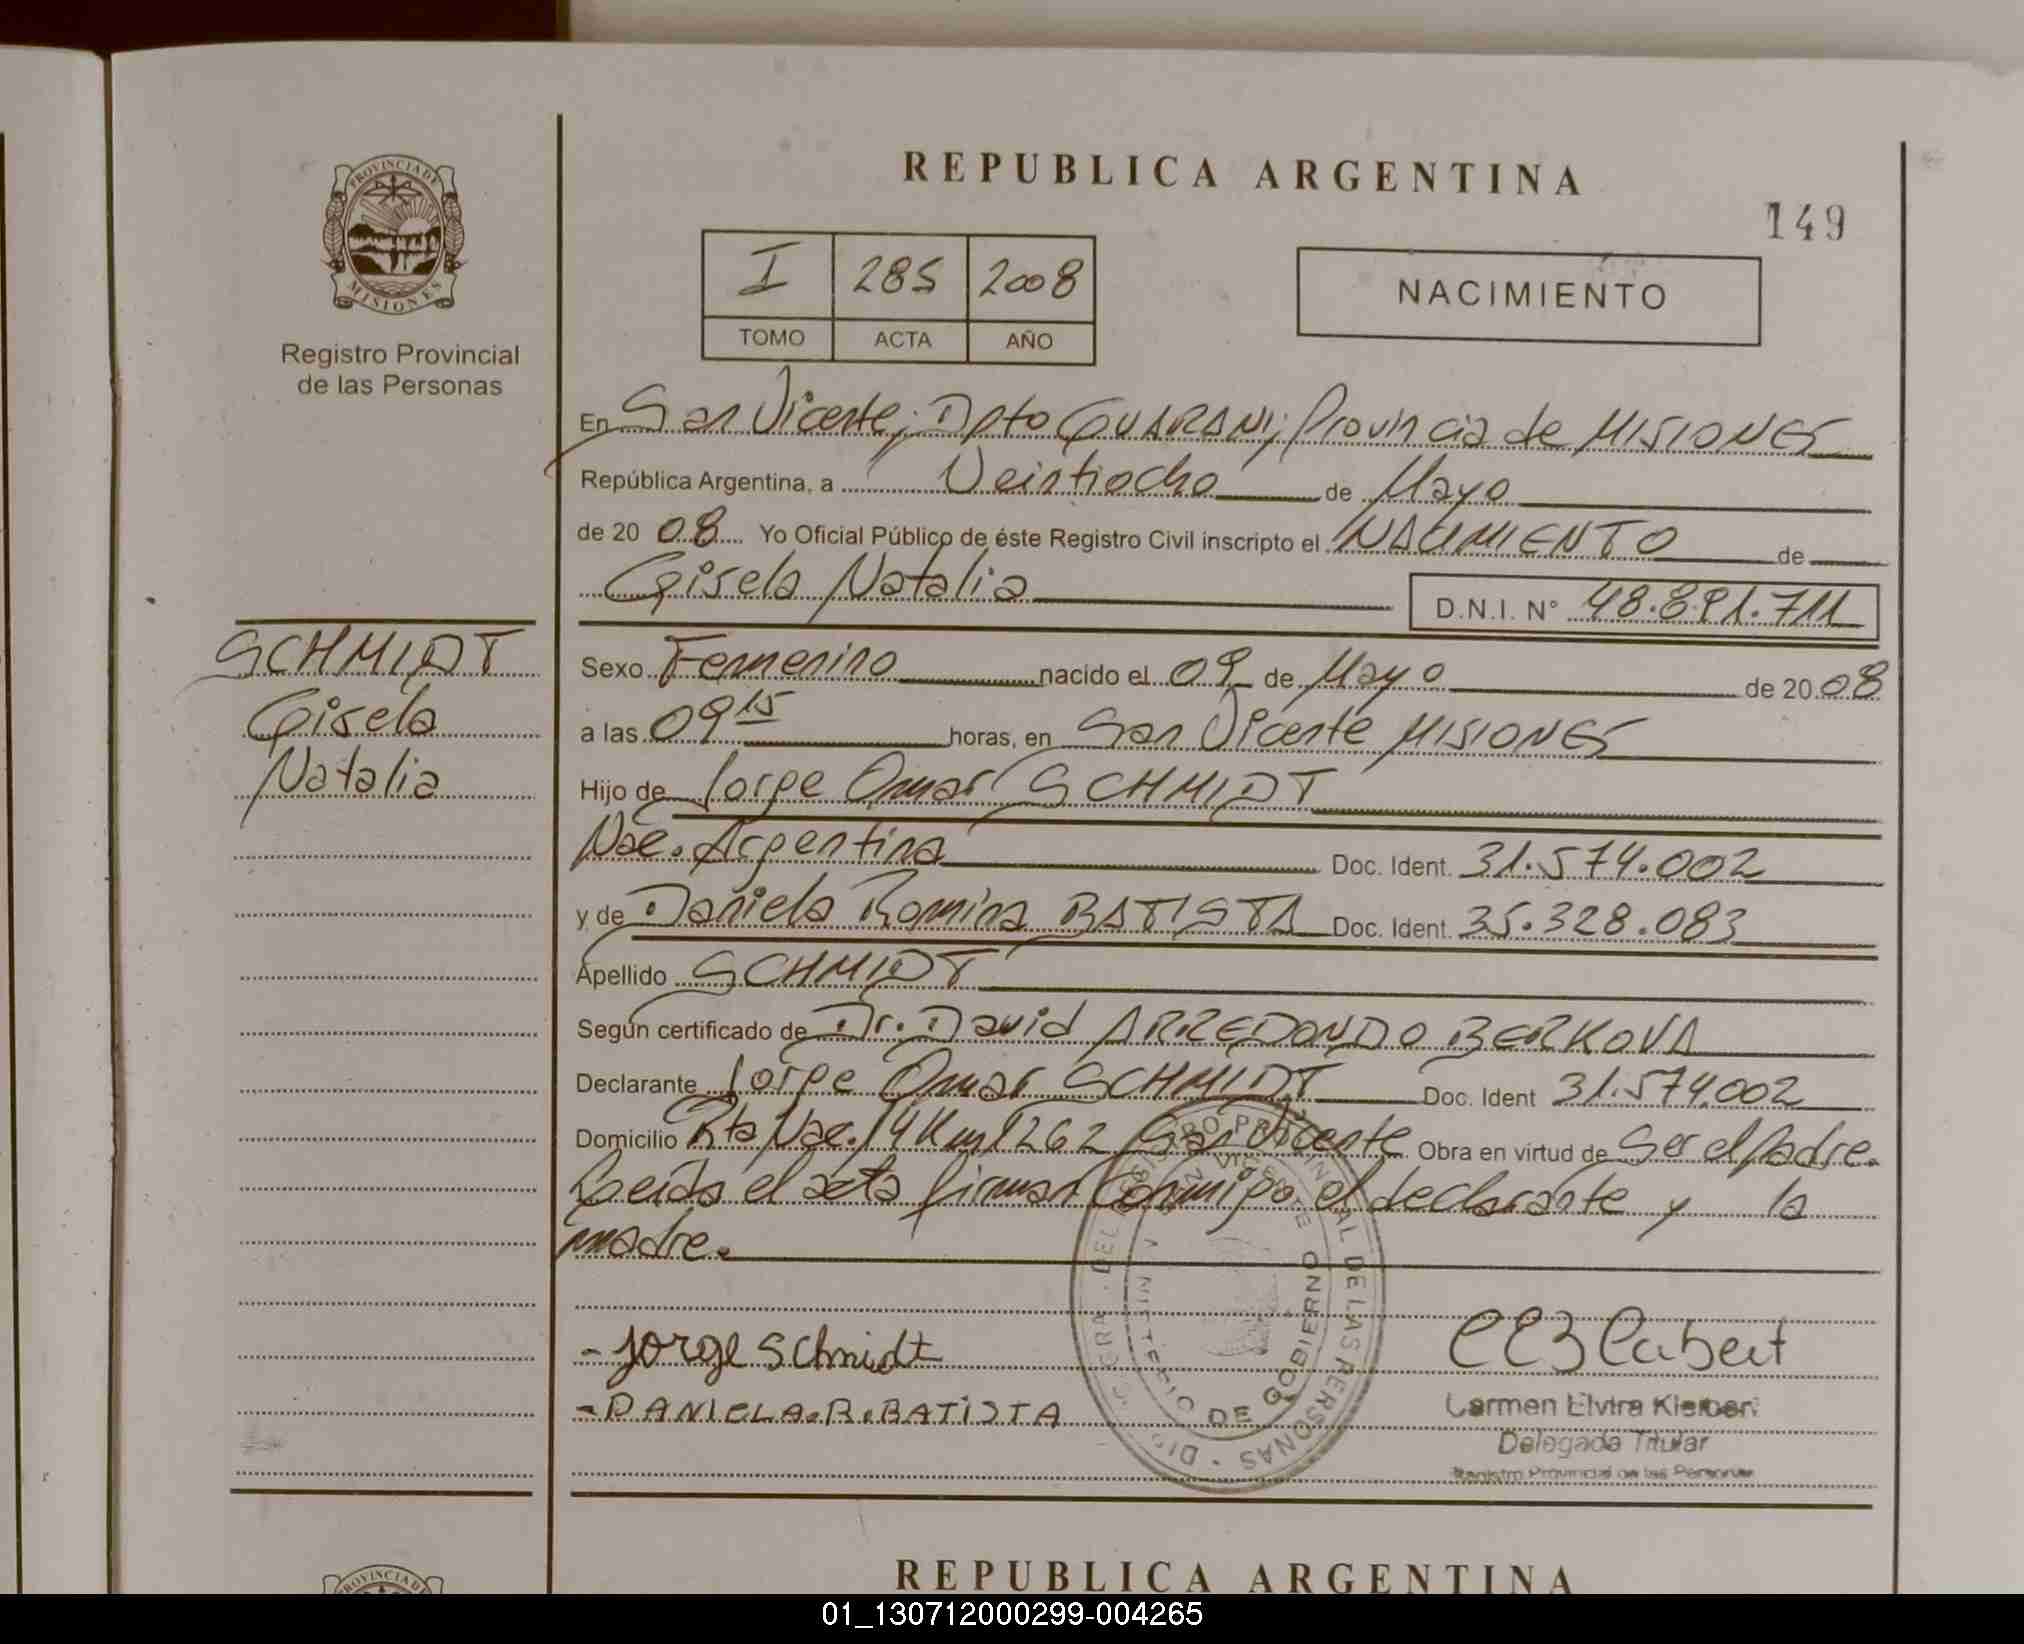 REPUBLICA ARGENTINA
149
PROVINCIA DE MISIONES
Registro Provincial
de las Personas
I 285 2008
TOMO ACTA AÑO
NACIMIENTO
En San Vicente; Dpto GUARANI; Provincia de MISIONES
República Argentina, a Veintiocho de Mayo
de 20 08 Yo Oficial Público de éste Registro Civil inscripto el NACIMIENTO de
Gisela Natalia D.N.I. N° 48.891.711
SCHMIDT
Gisela
Natalia
Sexo Femenino nacido el 09 de Mayo de 20 08
a las 09 15 horas, en San Vicente MISIONES
Hijo de Jorge Omar SCHMIDT
Nac. Argentina Doc. Ident. 31.574.002
y de Daniela Romina BATISTA Doc. Ident. 35.328.083
Apellido SCHMIDT
Según certificado de Dr. David ARREDONDO BERKOVA
Declarante Jorge Omar SCHMIDT Doc. Ident 31.574.002
Domicilio Rta Nac. 14 Km 1262 San Vicente Obra en virtud de Ser el Padre.
Leída el acta firman conmigo el declarante y la
madre.
- Jorge Schmidt
- DANIELA.R.BATISTA
DEL REGISTRO PROVINCIAL DE LAS PERSONAS
SAN VICENTE
MINISTERIO DE GOBIERNO
Carmen Elvira
Delegada Titular
Registro Provincial de las Personas
REPUBLICA ARGENTINA
PROVINCIA DE
01_130712000299-004265